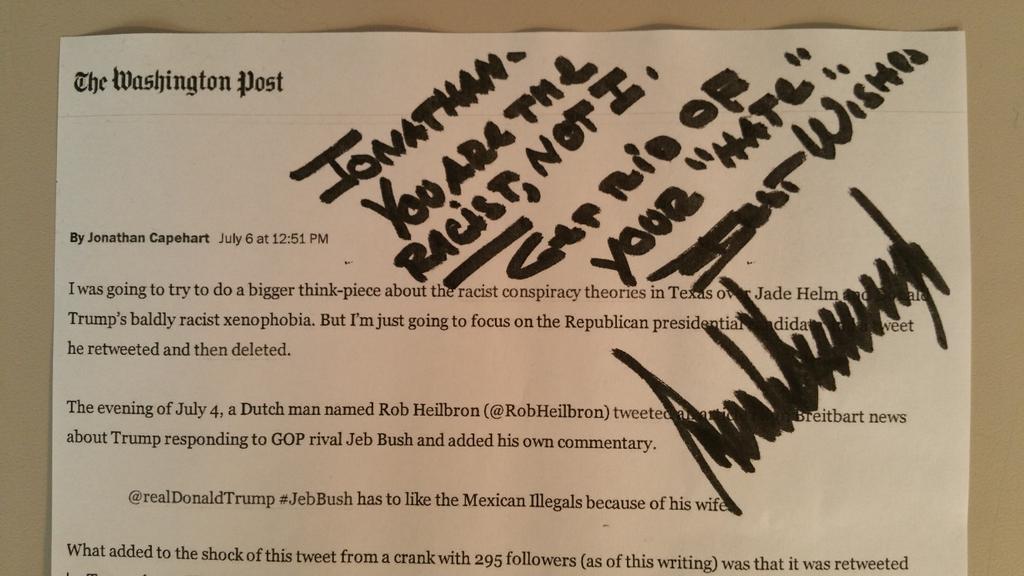 The Washington Post
JONATHAN-
YOU ARE THE
RACIST, NOT I.
GET RID OF
YOUR "HATE"
BEST WISHES
By Jonathan Capehart July 6 at 12:51 PM
I was going to try to do a bigger think-piece about the racist conspiracy theories in Texas over Jade Helm and Donald
Trump's baldly racist xenophobia. But I'm just going to focus on the Republican presidential candidate and a tweet
he retweeted and then deleted.
The evening of July 4, a Dutch man named Rob Heilbron (@RobHeilbron) tweeted an article from Breitbart news
about Trump responding to GOP rival Jeb Bush and added his own commentary.
@realDonaldTrump #JebBush has to like the Mexican Illegals because of his wife
What added to the shock of this tweet from a crank with 295 followers (as of this writing) was that it was retweeted